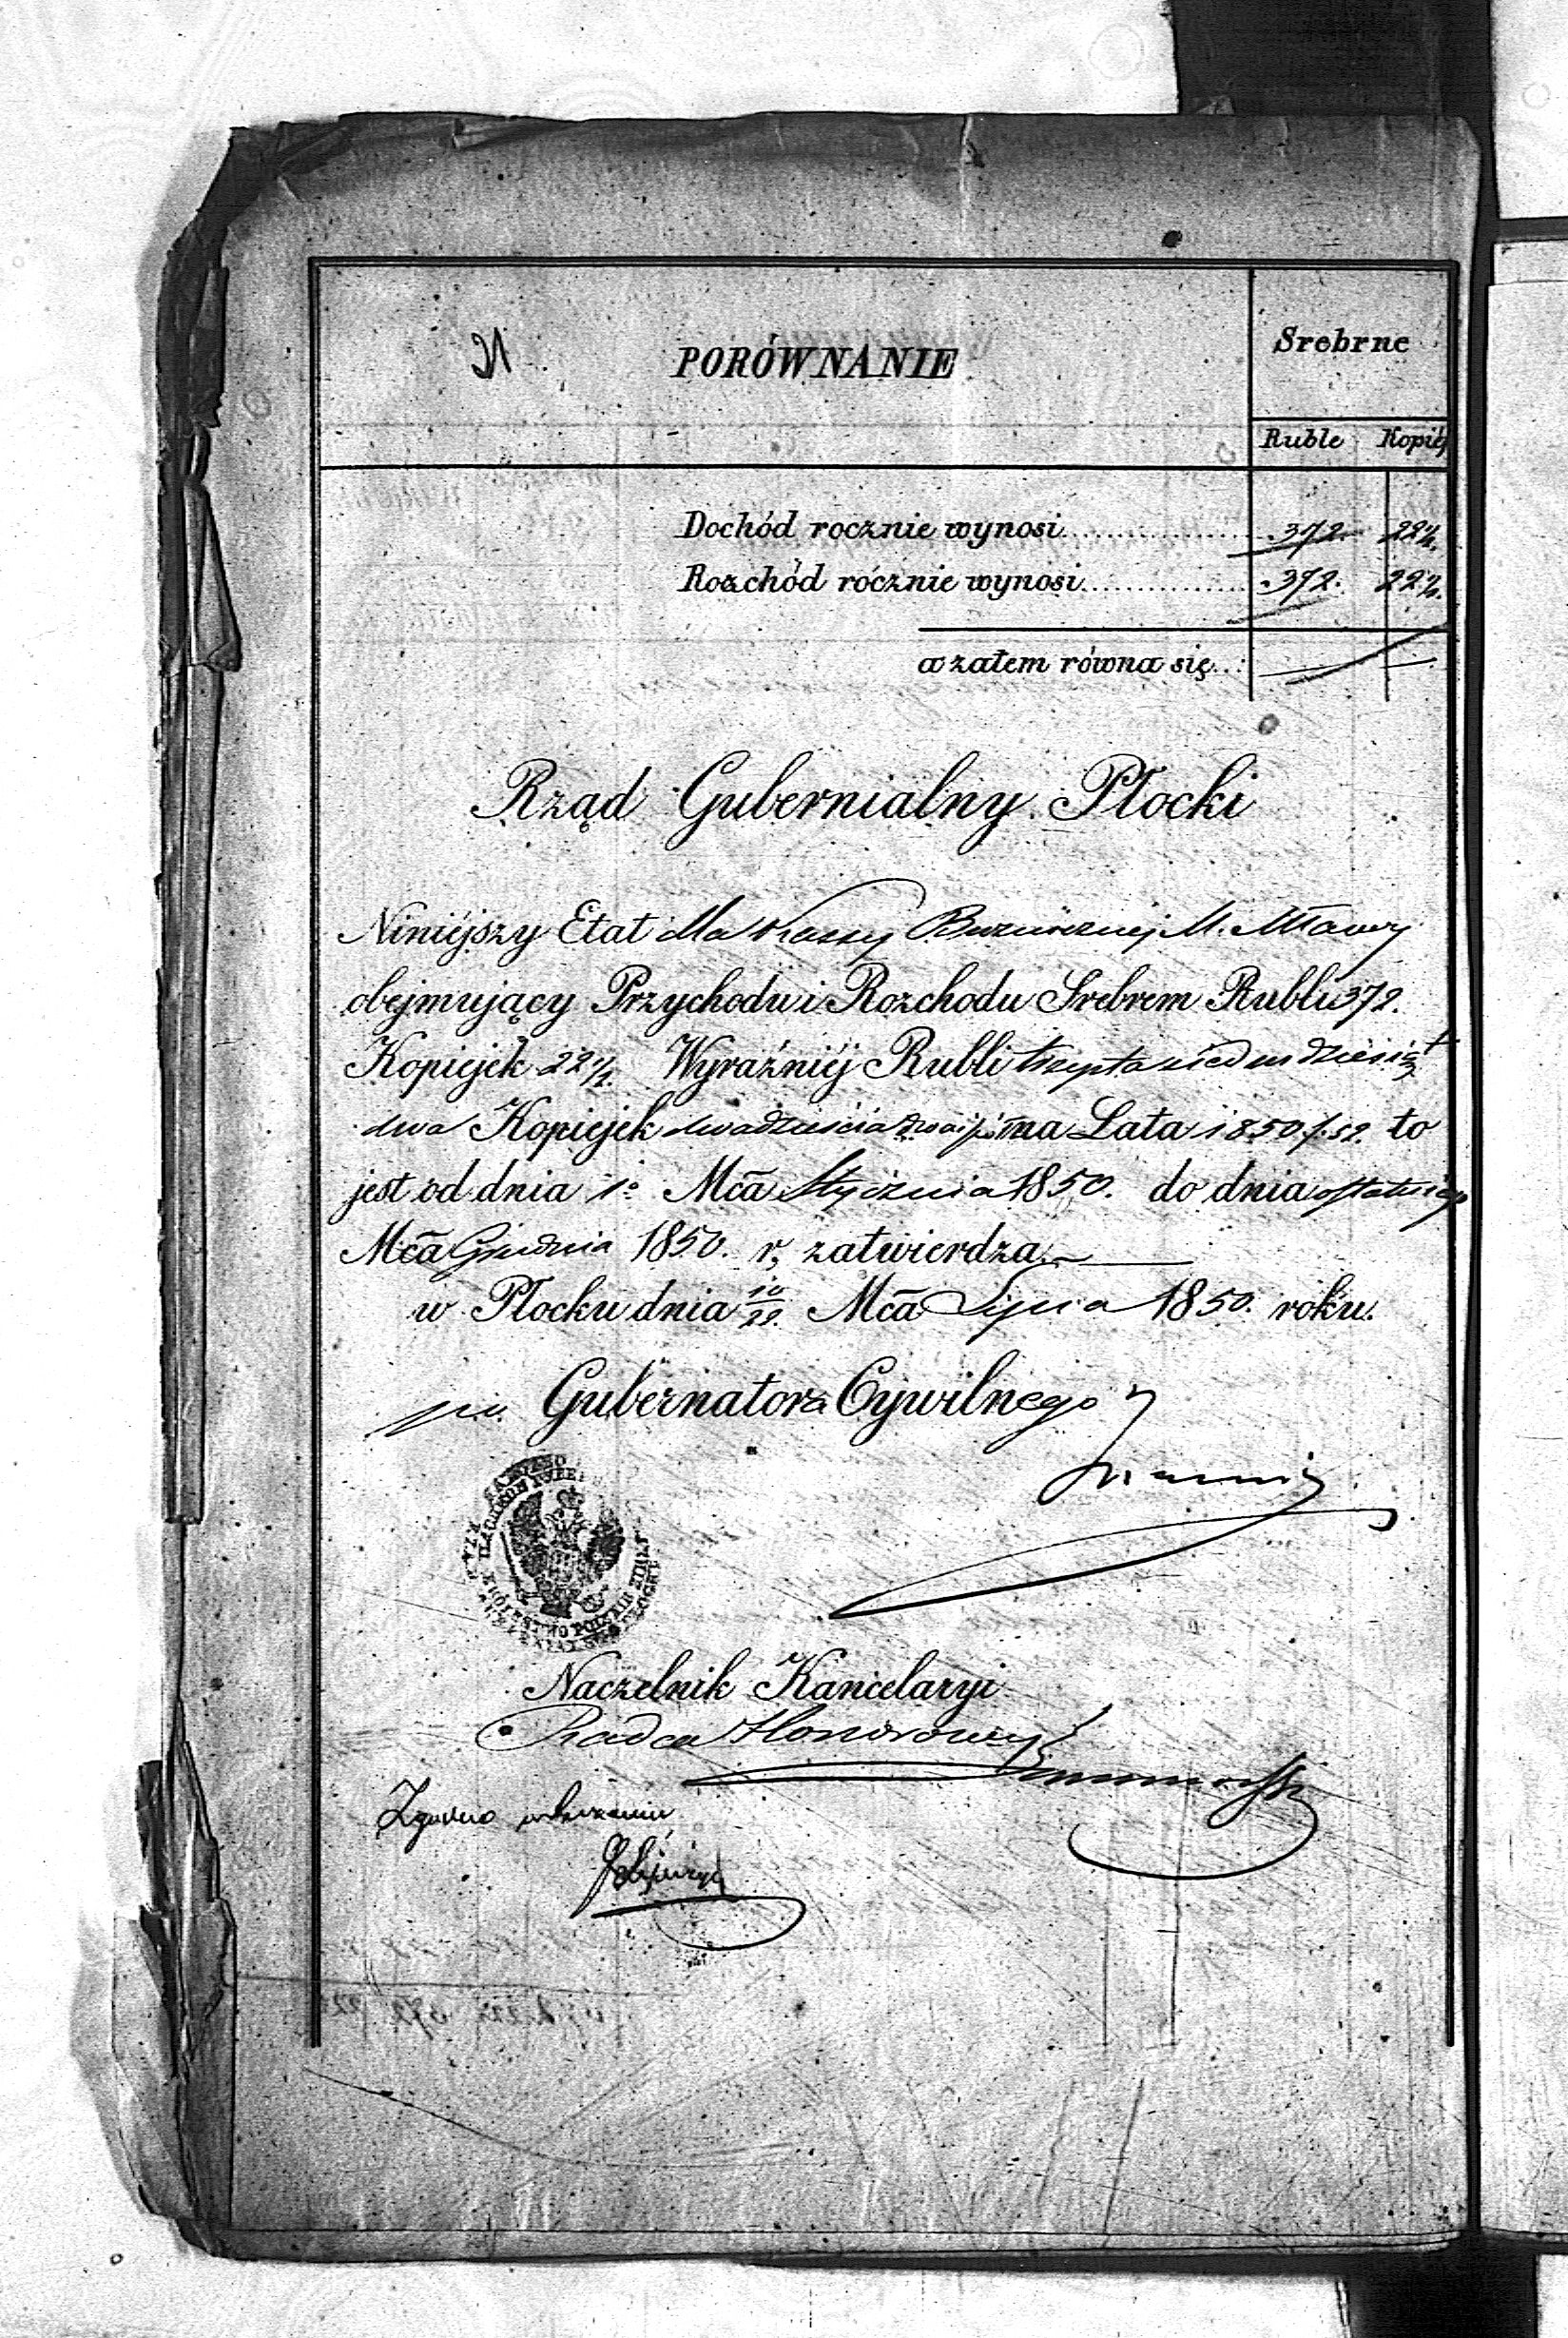 PORÓWNANIE
Srebrne
Ruble Kopiéj
Dochód rocznie wynosi 372. 22½.
Rozchód rócznie wynosi 372. 22½.
a zatem równa się
Rząd Gubernialny Płocki
Niniéjszy Etat dla Kassy Bożnicznéj M. Mławy
obejmujący Przychodu i Rozchodu Srebrem Rubli 372.
Kopiejek 22½. Wyraźniéj Rubli trzysta siedmdziesiąt
dwa Kopiejek dwadzieścia dwa i pół na Lata 1850/52. to
jest od dnia 1o Mca Stycznia 1850. do dnia ostatniego
Mca Grudnia 1850. r, zatwierdza.
w Płocku dnia 10/22. Mca Lipca 1850. roku.
p.o. Gubernatora Cywilnego
Naczelnik Kancelaryi
Radca Honorowy
Zgodno